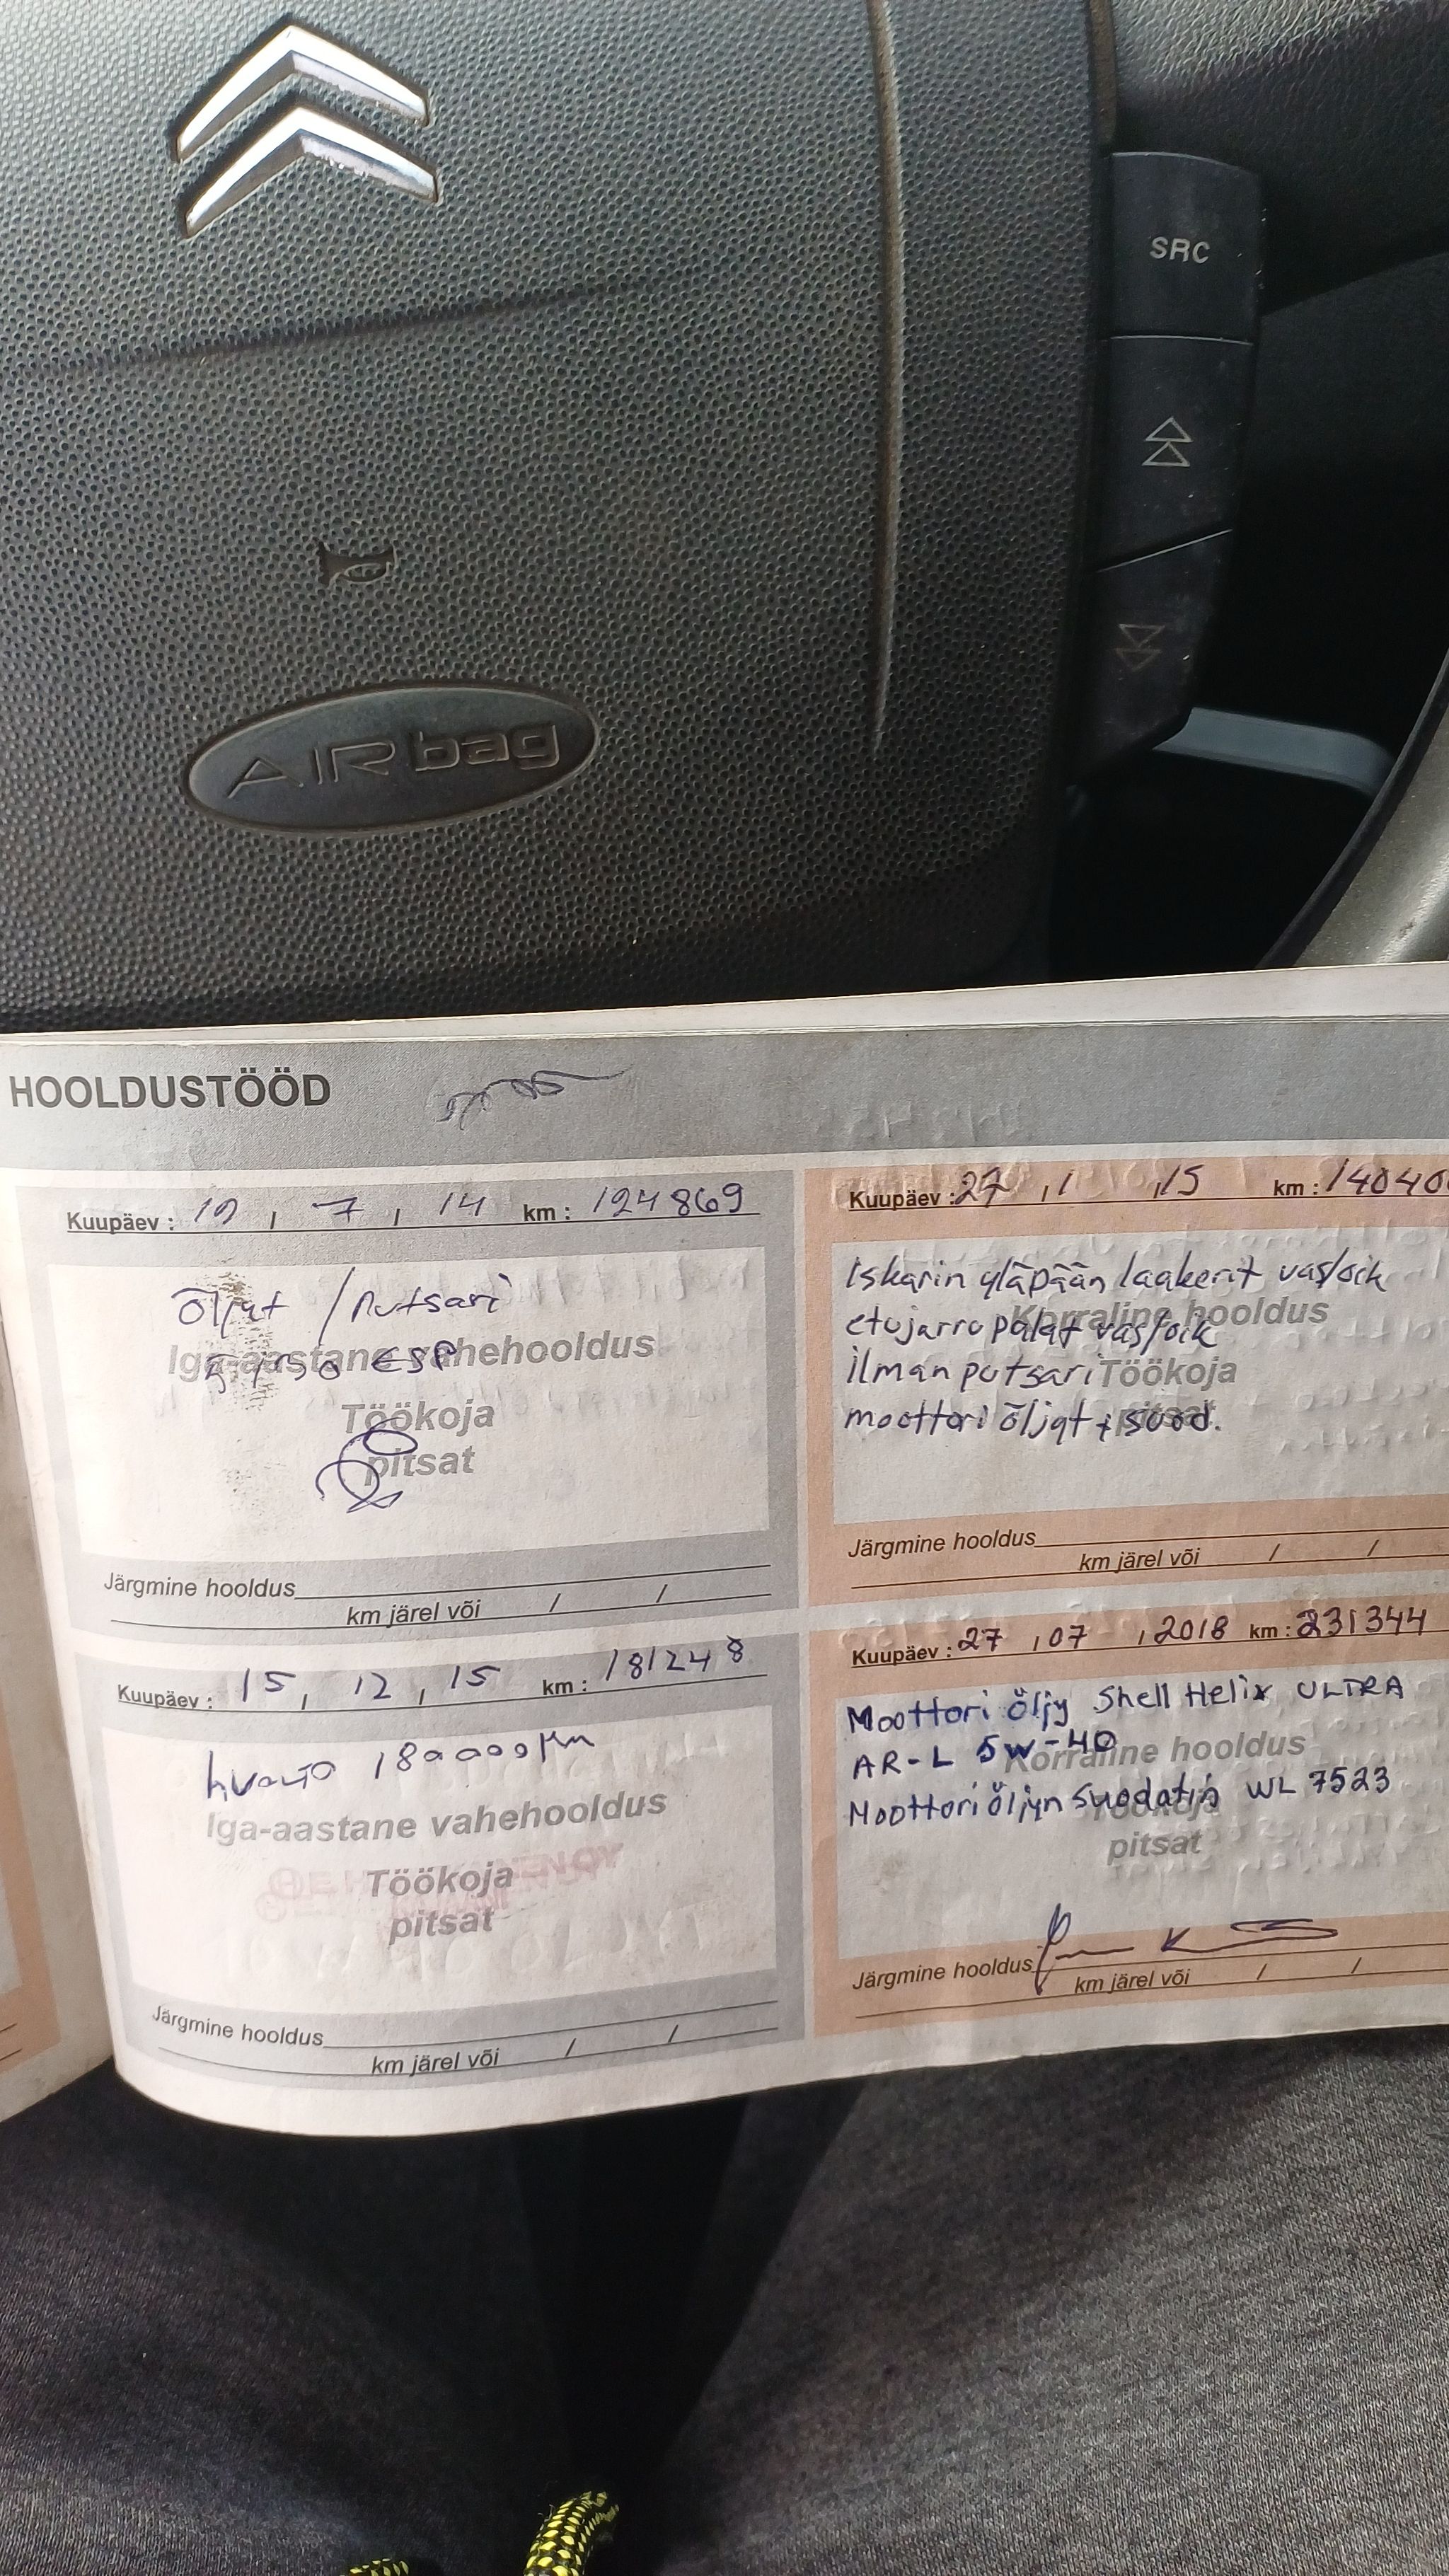 SRC
AIRbag
HOOLDUSTÖÖD
Kuupäev : 19 , 7 , 14 km : 124869
öljyt / putsari
Iga-aastane vahehooldus
5W30 ESP
Töökoja
pitsat
Järgmine hooldus
km järel või / /
Kuupäev : 27 , 1 , 15 km : 14040
Iskarin yläpään laakerit vas/oik
Korraline hooldus
etujarru palat vas/oik
ilman putsari
Töökoja
moottori öljyt + suod.
pitsat
Järgmine hooldus
km järel või / /
Kuupäev : 15 , 12 , 15 km : 181248
huolto 180000km
Iga-aastane vahehooldus
Töökoja
pitsat
Järgmine hooldus
km järel või / /
Kuupäev : 27 , 07 , 2018 km : 231344
Moottori öljy Shell Helix ULTRA
AR-L 5W-40
Korraline hooldus
Moottoriöljyn suodatin WL 7523
Töökoja
pitsat
Järgmine hooldus
km järel või / /